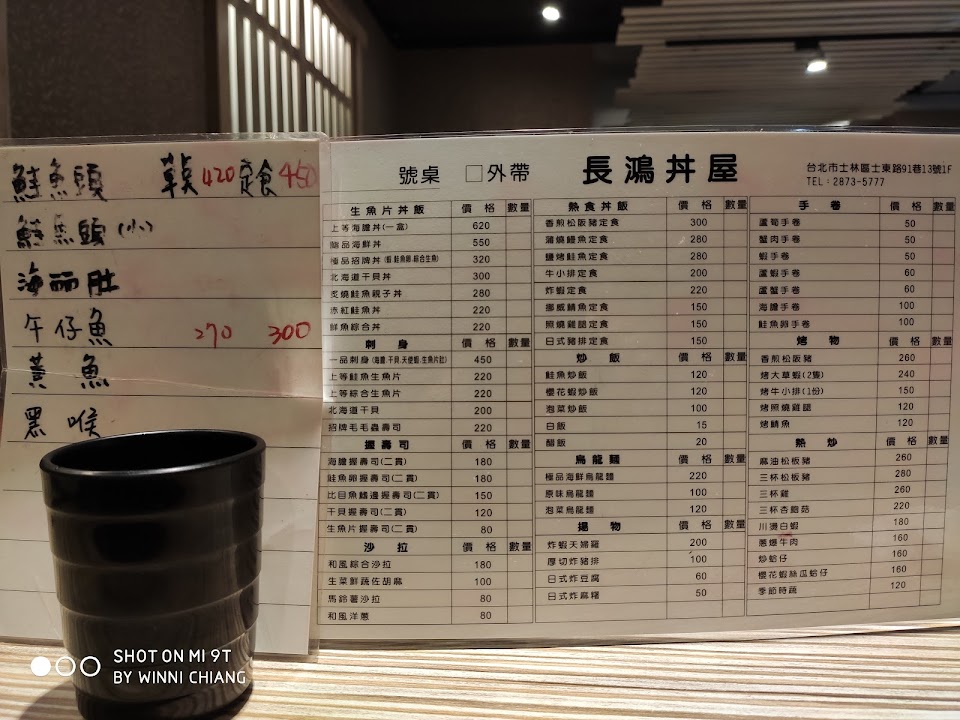 鮭魚頭 單點420 定食450
鮭魚頭(小)
海而肚
午仔魚 270 300
黃魚
黑喉
號桌 □外帶 長鴻丼屋
台北市士林區士東路91巷13號1F
TEL：2873-5777
生魚片丼飯 價格 數量
上等海膽丼(一盒) 620
極品海鮮丼 550
極品招牌丼(蝦.鮭魚卵.綜合生魚) 320
北海道干貝丼 300
炙燒鮭魚親子丼 280
赤紅鮭魚丼 220
鮮魚綜合丼 220
刺身 價格 數量
一品刺身(海膽.干貝.天使蝦.生魚片肚) 450
上等鮭魚生魚片 220
上等綜合生魚片 220
北海道干貝 200
招牌毛毛蟲壽司 220
握壽司 價格 數量
海膽握壽司(二貫) 180
鮭魚卵握壽司(二貫) 180
比目魚鰭邊握壽司(二貫) 150
干貝握壽司(二貫) 120
生魚片握壽司(二貫) 80
沙拉 價格 數量
和風綜合沙拉 180
生菜鮮蔬佐胡麻 100
馬鈴薯沙拉 80
和風洋蔥 80
熱食丼飯 價格 數量
香煎松阪豬定食 300
蒲燒鰻魚定食 280
鹽烤鮭魚定食 280
牛小排定食 200
炸蝦定食 220
挪威鯖魚定食 150
照燒雞腿定食 150
日式豬排定食 150
炒飯 價格 數量
鮭魚炒飯 120
櫻花蝦炒飯 120
泡菜炒飯 100
白飯 15
醋飯 20
烏龍麵 價格 數量
極品海鮮烏龍麵 220
原味烏龍麵 100
泡菜烏龍麵 120
揚物 價格 數量
炸蝦天婦羅 200
厚切炸豬排 100
日式炸豆腐 60
日式炸麻糬 50
手卷 價格 數量
蘆筍手卷 50
蟹肉手卷 50
蝦手卷 50
蘆蝦手卷 60
蘆蟹手卷 60
海膽手卷 100
鮭魚卵手卷 100
烤物 價格 數量
香煎松阪豬 260
烤大草蝦(2隻) 240
烤牛小排(1份) 150
烤照燒雞腿 120
烤鯖魚 120
熱炒 價格 數量
麻油松板豬 260
三杯松板豬 280
三杯雞 260
三杯杏鮑菇 220
川燙白蝦 180
蔥爆牛肉 160
炒蛤仔 160
櫻花蝦絲瓜蛤仔 160
季節時蔬 120
SHOT ON MI 9T
BY WINNI CHIANG